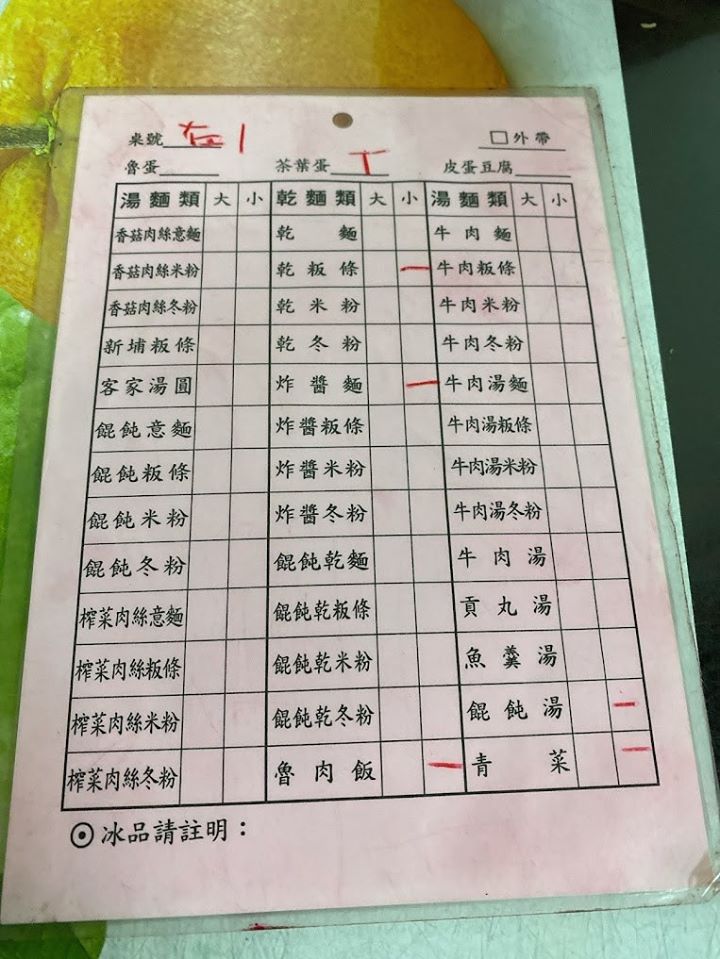 桌號 右1 □外帶
魯蛋 茶葉蛋 T 皮蛋豆腐
湯麵類 大 小 乾麵類 大 小 湯麵類 大 小
香菇肉絲意麵 乾麵 牛肉麵
香菇肉絲米粉 乾粄條 一 牛肉粄條
香菇肉絲冬粉 乾米粉 牛肉米粉
新埔粄條 乾冬粉 牛肉冬粉
客家湯圓 炸醬麵 一 牛肉湯麵
餛飩意麵 炸醬粄條 牛肉湯粄條
餛飩粄條 炸醬米粉 牛肉湯米粉
餛飩米粉 炸醬冬粉 牛肉湯冬粉
餛飩冬粉 餛飩乾麵 牛肉湯
榨菜肉絲意麵 餛飩乾粄條 貢丸湯
榨菜肉絲粄條 餛飩乾米粉 魚羹湯
榨菜肉絲米粉 餛飩乾冬粉 餛飩湯 一
榨菜肉絲冬粉 魯肉飯 一 青菜 一
⊙冰品請註明：